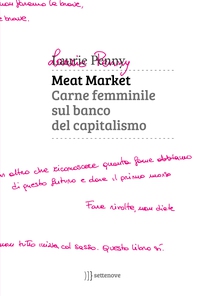 non faremo le brave,
e brave.
Laurie Penny
Laurie Penny
Meat Market
Carne femminile
sul banco
del capitalismo
altro che riconoscere quanta fame abbiamo
di questo futuro e dare il primo morso
Fate rivolte, non diete
non tutto inizia col sesso. Questo libro sì.
settenove